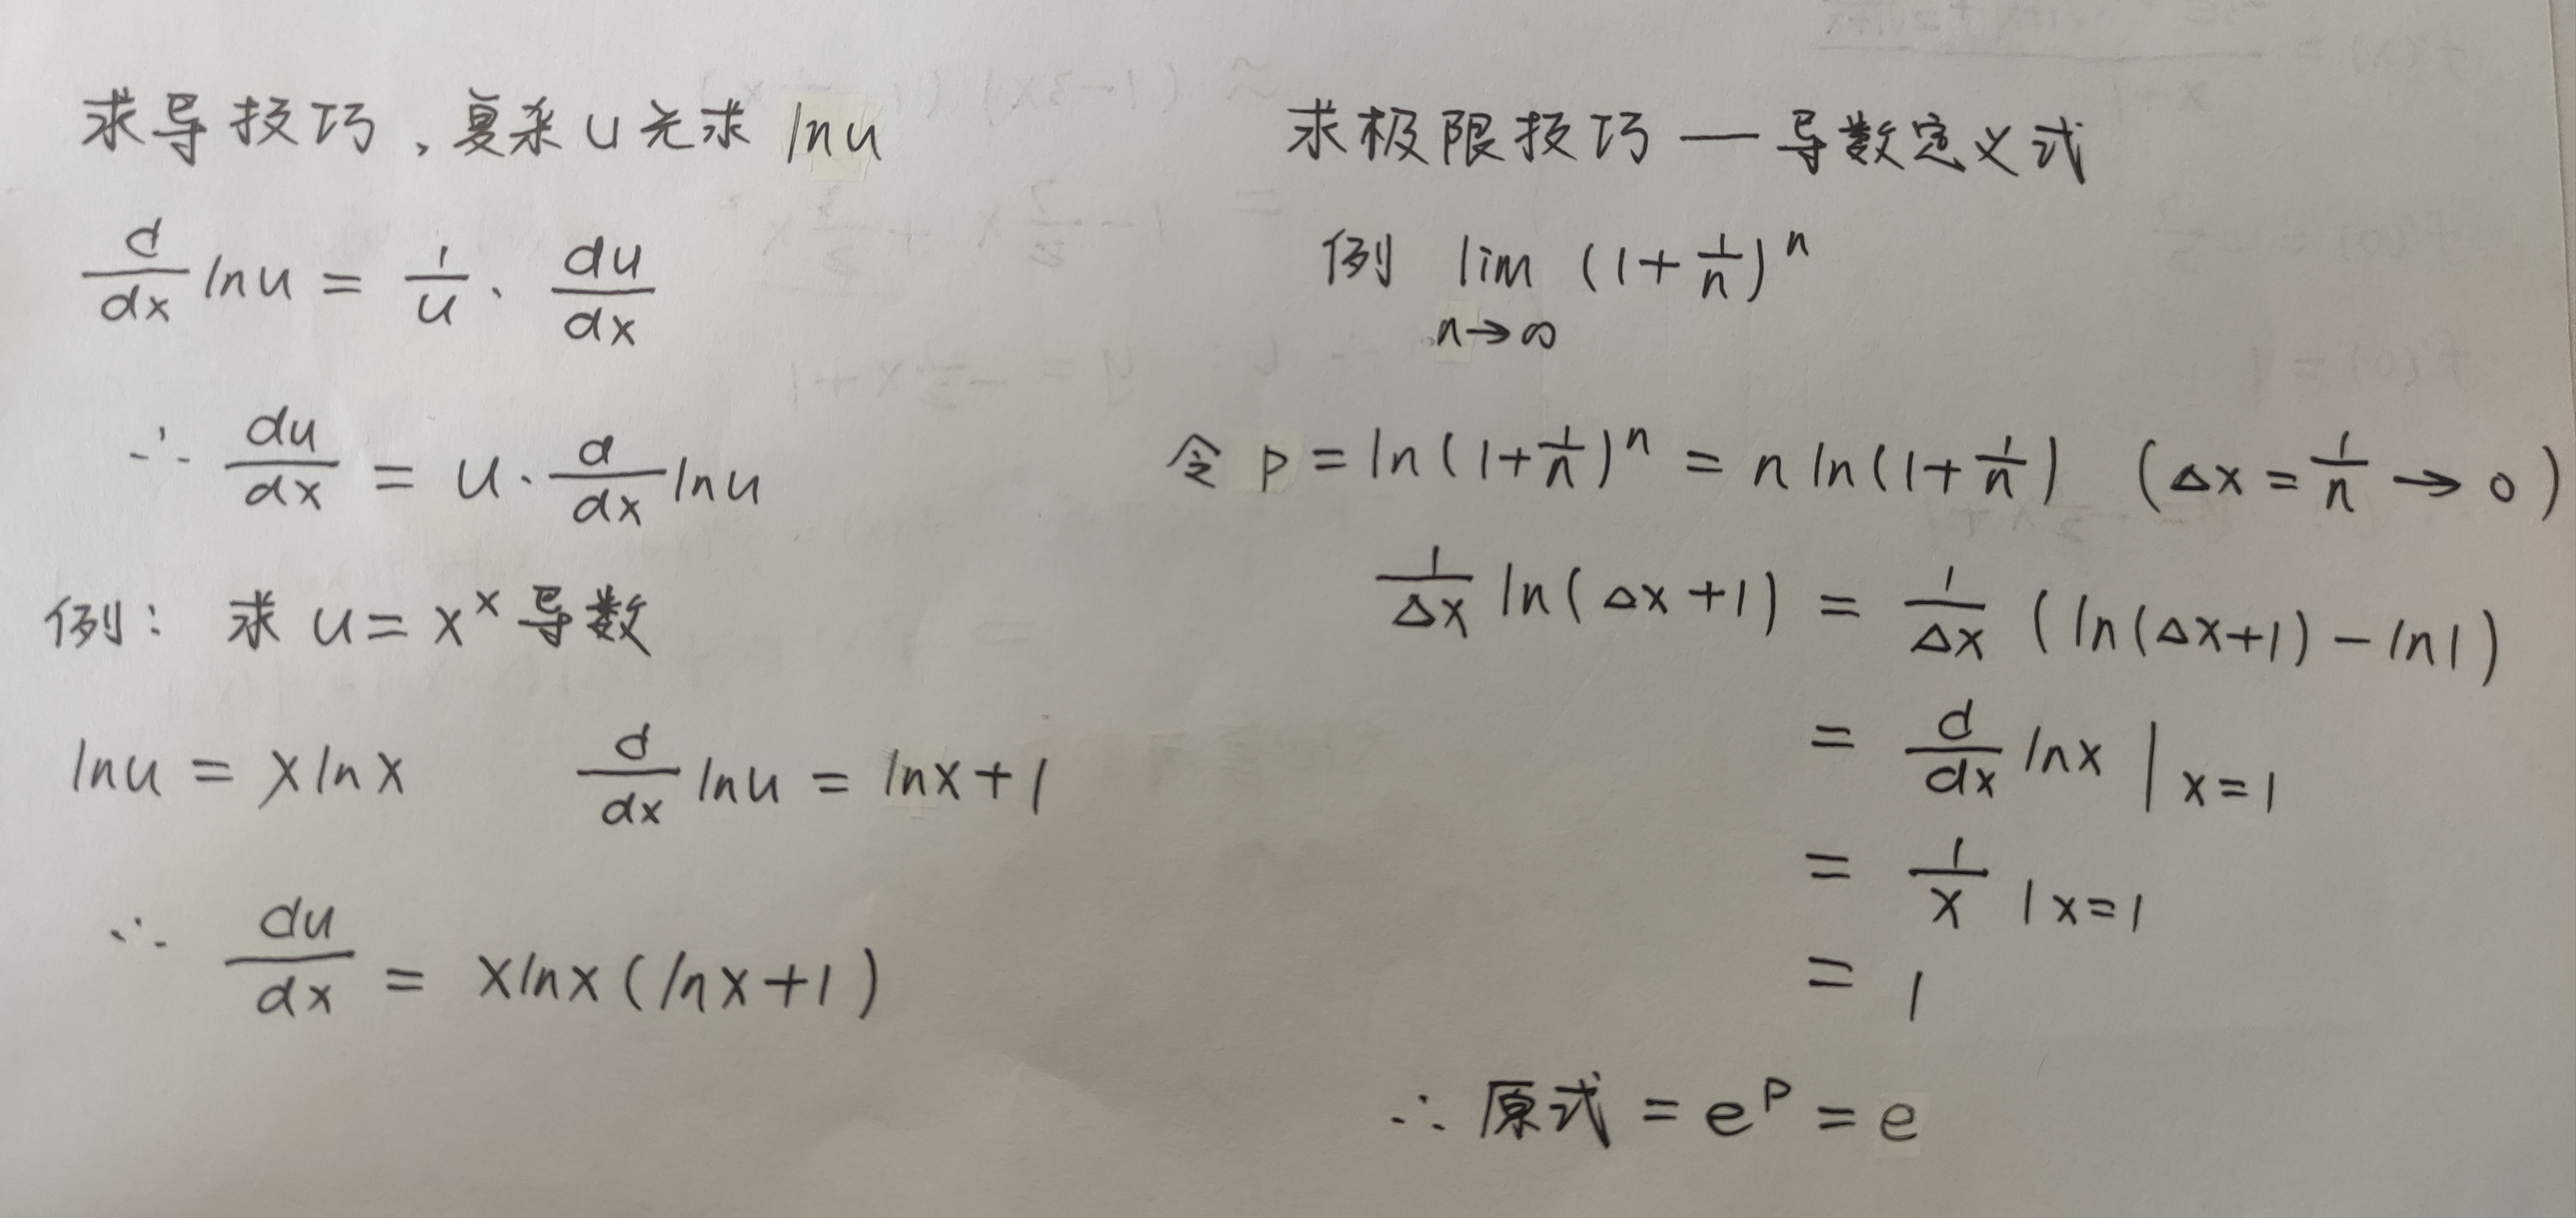 求导技巧、复杂u先求 lnu
d/dx lnu = 1/u · du/dx
∴ du/dx = u · d/dx lnu
例： 求 u = x^x 导数
lnu = xlnx d/dx lnu = lnx+1
∴ du/dx = xlnx(lnx+1)
求极限技巧 — 导数定义式
例 lim n→∞ (1+1/n)^n
令 P = ln(1+1/n)^n = n ln(1+1/n) (Δx = 1/n → 0)
1/Δx ln(Δx+1) = 1/Δx (ln(Δx+1) - ln1)
= d/dx lnx | x=1
= 1/x | x=1
= 1
∴ 原式 = e^P = e